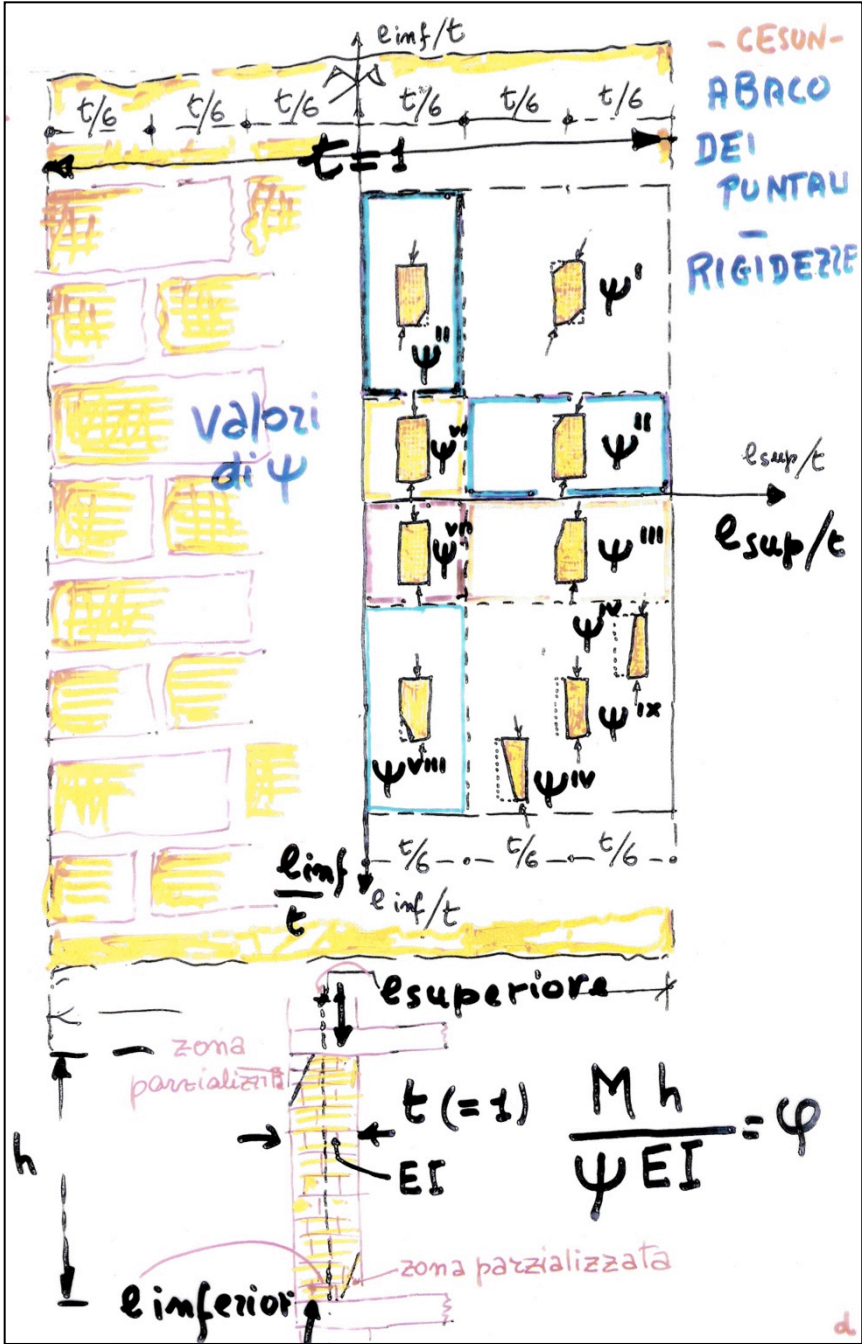 e inf/t
- CESUN-
ABACO
DEI
PUNTALI
-
RIGIDEZZE
t/6 t/6 t/6 t/6 t/6 t/6
t=1
ψ'
ψ"
valori
di ψ
ψVI
ψ"
esup/t
esup/t
ψVII
ψ'''
ψIV
ψIX
ψVIII
ψIV
t/6 t/6 t/6
einf
t
e inf/t
esuperiore
zona
parzializzata
h
t (=1)
EI
M h
ψ EI
= φ
zona parzializzata
e inferior
d